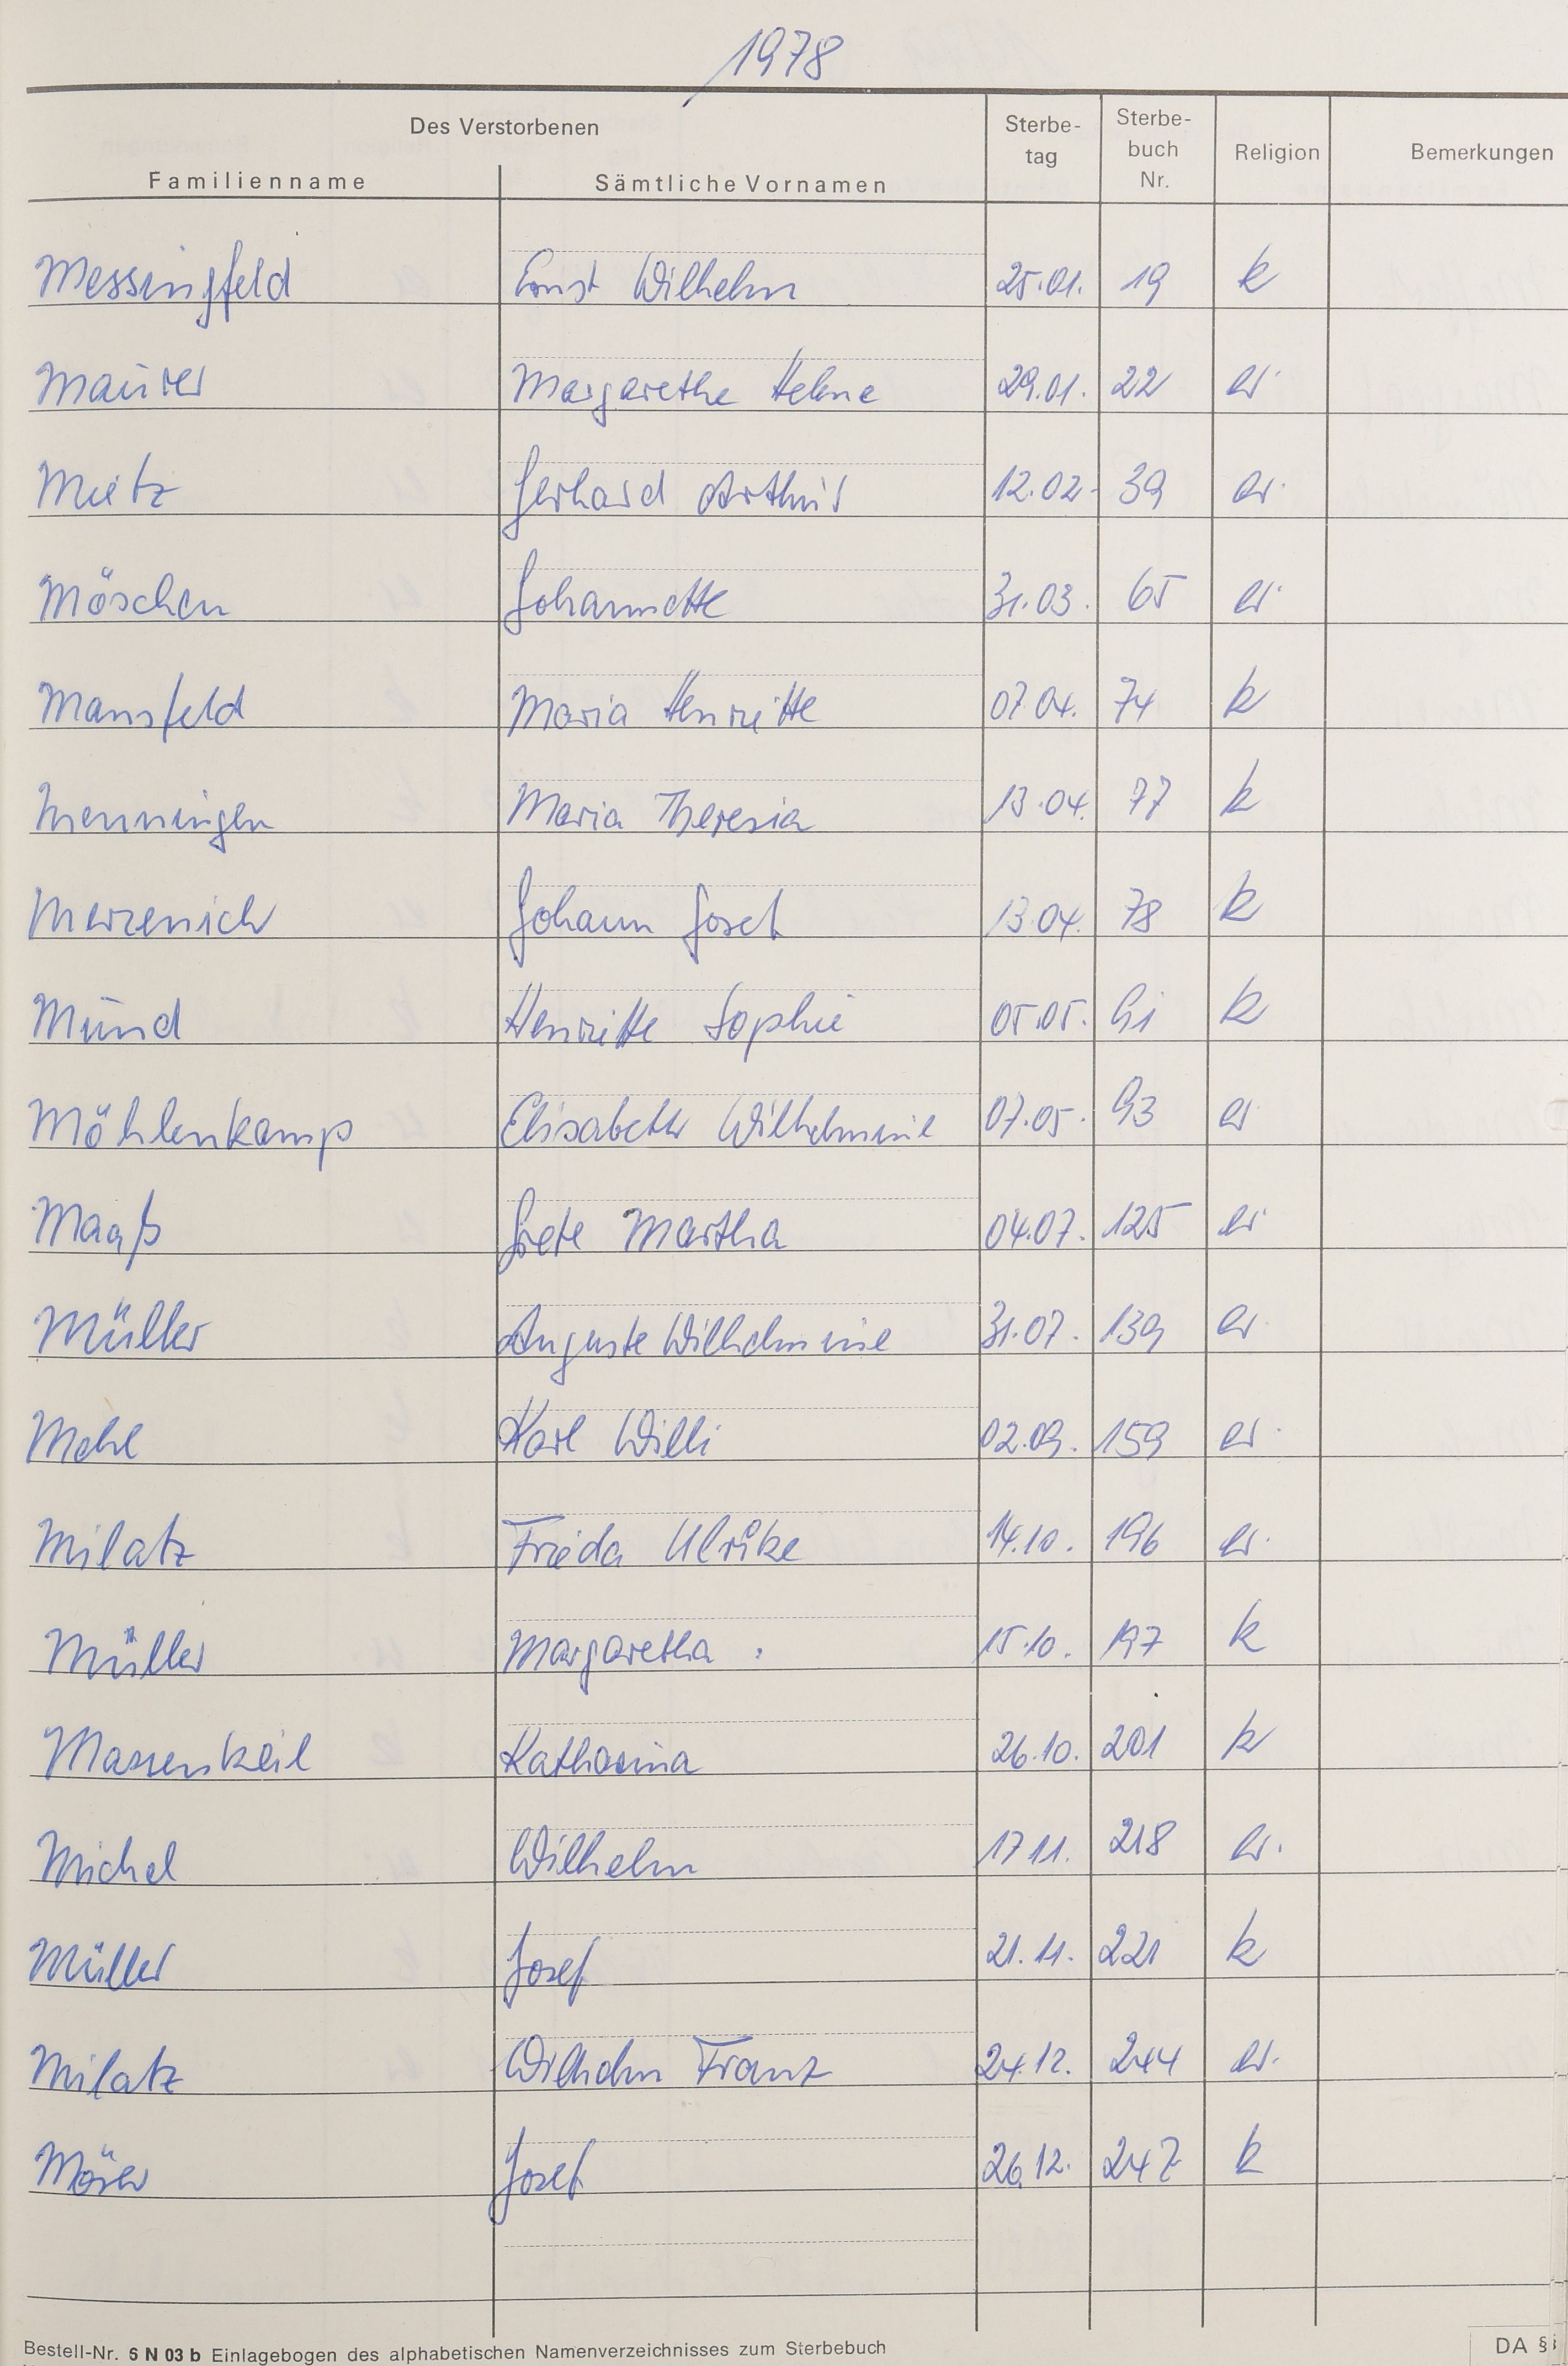 1978
Des Verstorbenen
Familienname Sämtliche Vornamen Sterbe-tag Sterbe-buch Nr. Religion Bemerkungen
Messingfeld Ernst Wilhelm 25.01. 19 k
Maurer Margarethe Helene 29.01. 22 ev.
Gerhard Arthur 12.02. 39 ev.
Möschen Johannette 31.03. 65 ev.
Mansfeld Maria Henriette 07.04. 74 k
Menningen Maria Theresia 13.04. 77 k
Merzenich Johann Josef 13.04. 78 k
Mund Henriette Sophie 05.05. 91 k
Möhlenkamp Elisabeth Wilhelmine 07.05. 93 ev
Maaß Grete Martha 04.07. 125 ev
Müller Auguste Wilhelmine 31.07. 139 ev.
Mehl Karl Willi 02.09. 159 ev.
Milatz Frieda Ulrike 14.10. 196 ev.
Müller Margaretha 15.10. 197 k
Massenkeil Katharina 26.10. 201 k
Michel Wilhelm 17.11. 218 ev.
Müller Josef 21.11. 221 k
Milatz Wilhelm Franz 24.12. 244 ev.
Möser Josef 26.12. 247 k
Bestell-Nr. 6 N 03 b Einlagebogen des alphabetischen Namenverzeichnisses zum Sterbebuch DA §